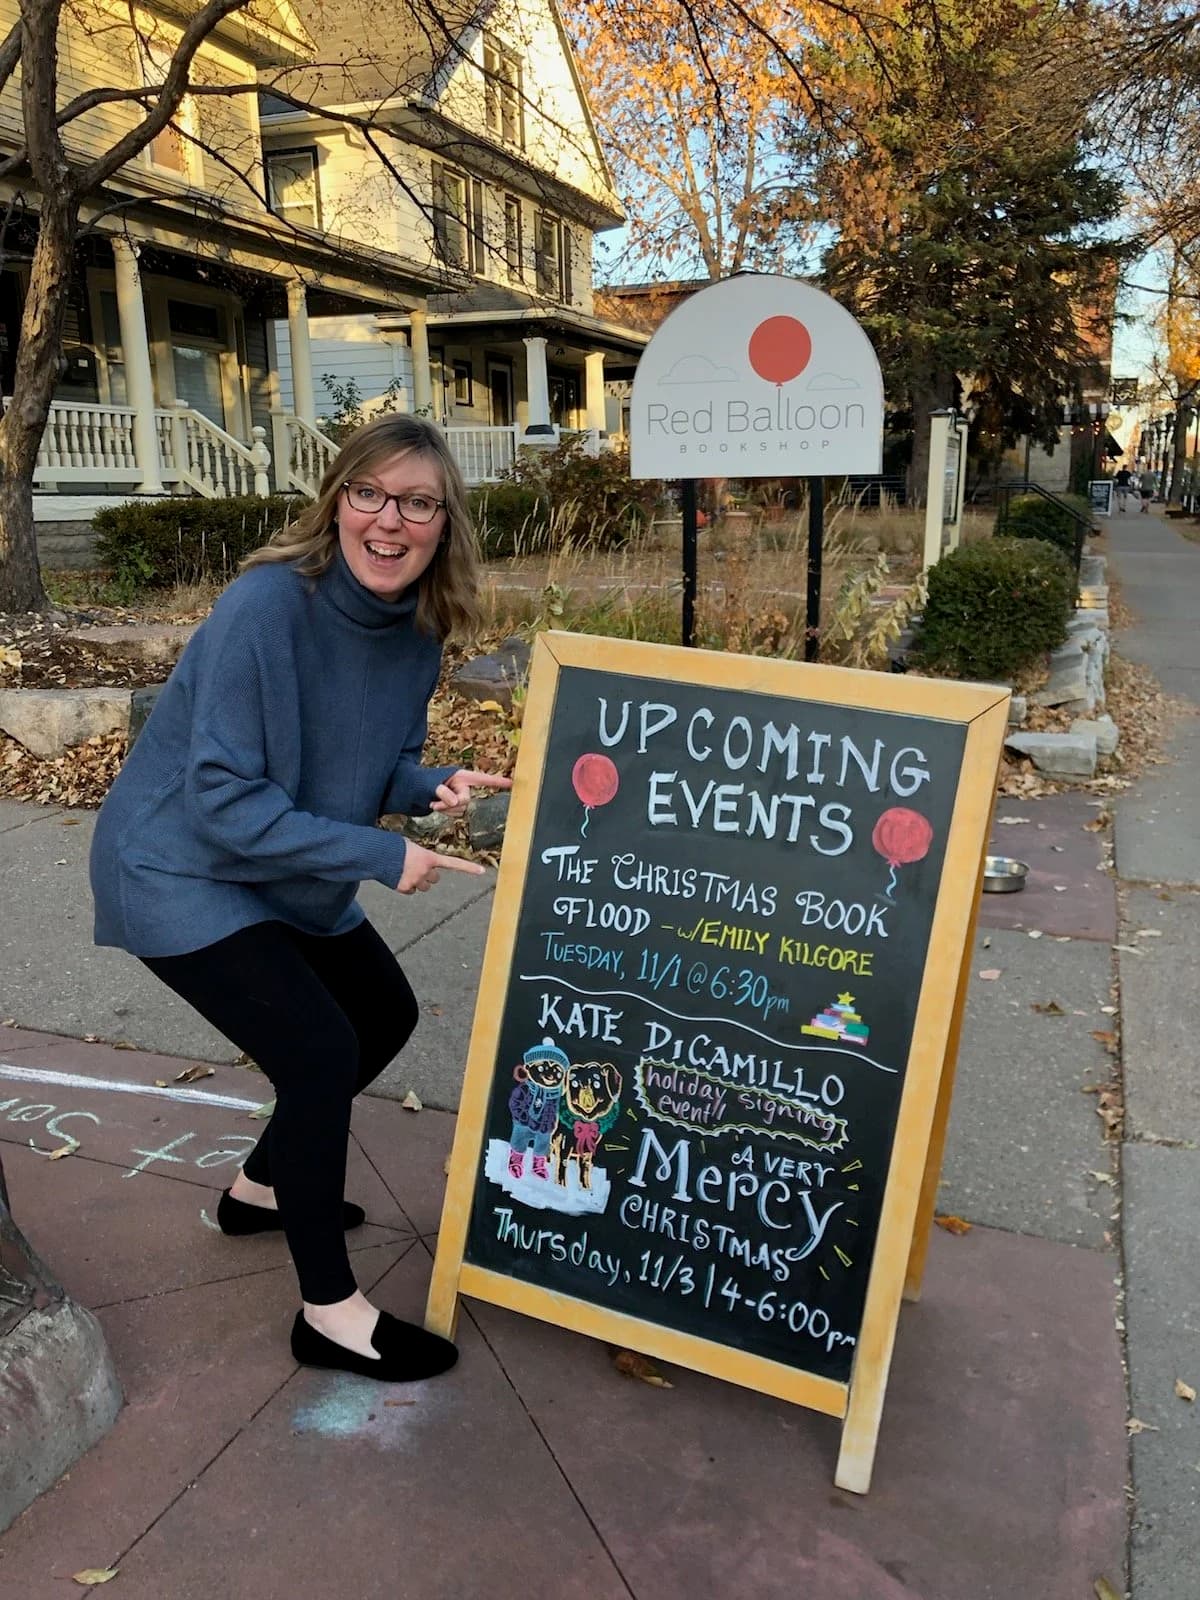 Red Balloon
BOOKSHOP
UPCOMING
EVENTS
THE CHRISTMAS BOOK
FLOOD - w/ EMILY KILGORE
TUESDAY, 11/1 @ 6:30pm
KATE DiCAMILLO
holiday signing
event!!
A VERY
MERCY
CHRISTMAS
Thursday, 11/3 | 4-6:00pm